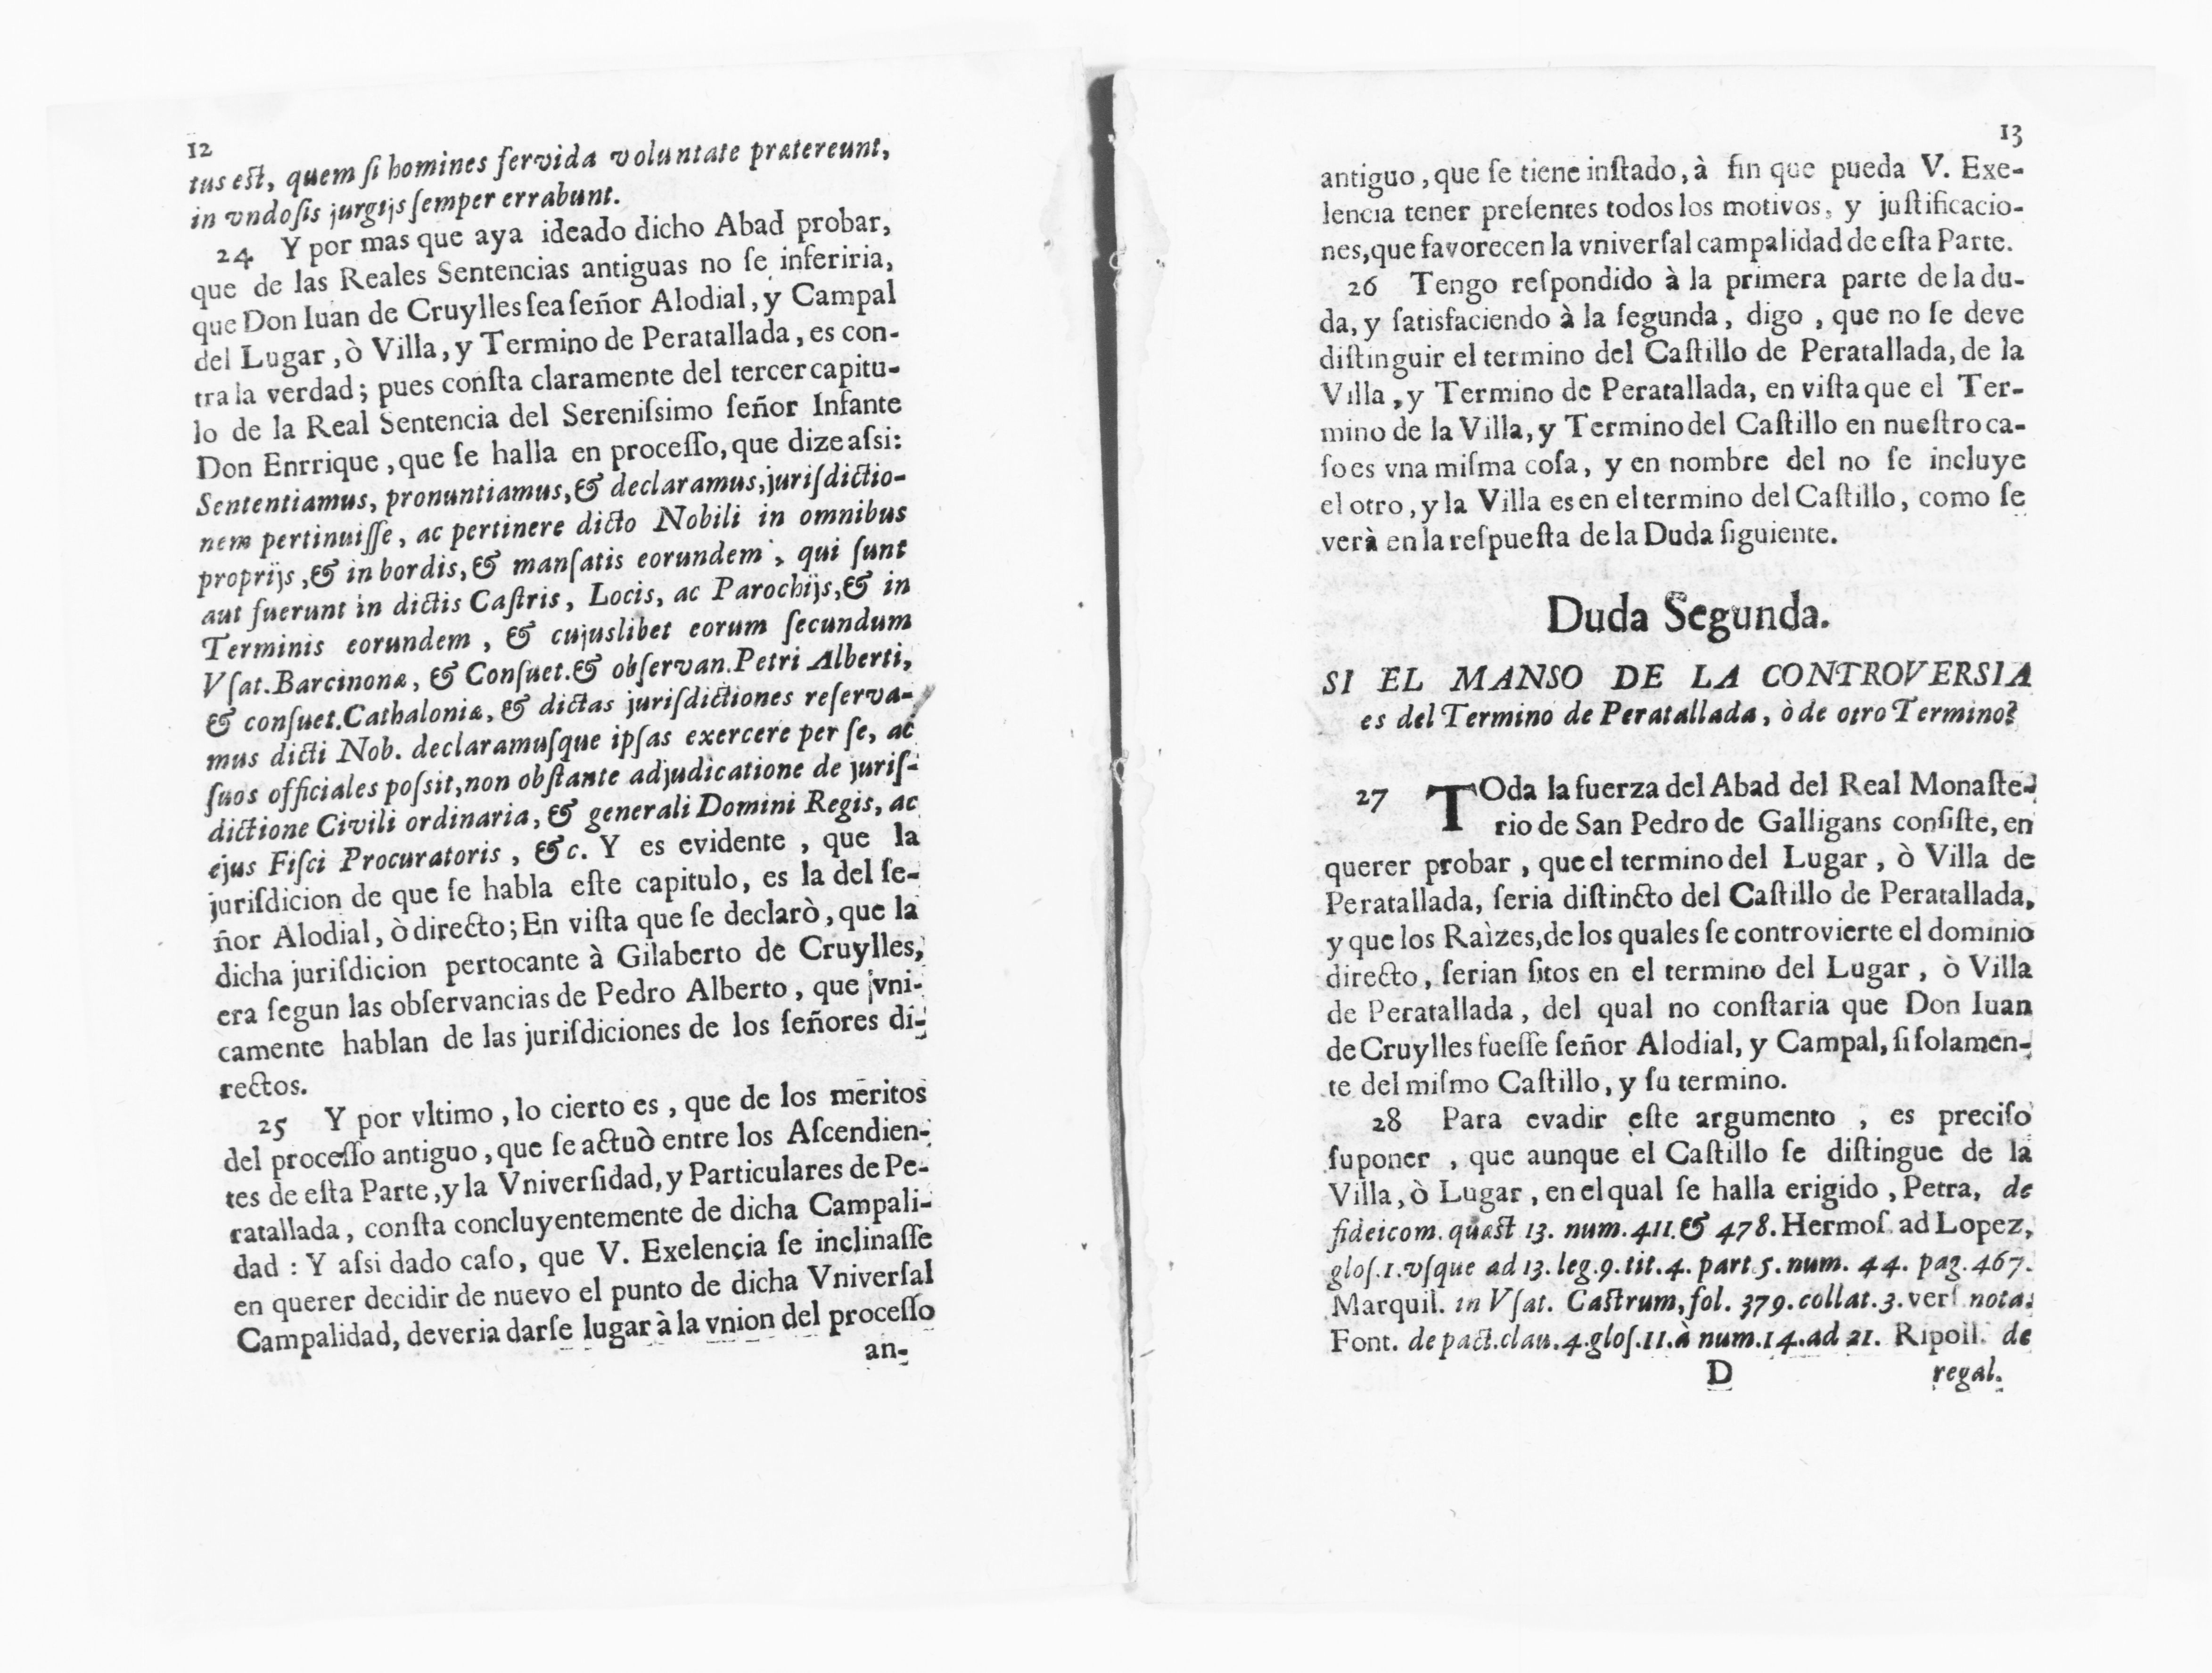 12
tus est, quem ſi homines ſervida voluntate prætereunt,
in vndoſis jurgijs ſemper errabunt.
24 Y por mas que aya ideado dicho Abad probar,
que de las Reales Sentencias antiguas no ſe inferiria,
que Don Iuan de Cruylles ſea ſeñor Alodial, y Campal
del Lugar, ò Villa, y Termino de Peratallada, es con-
tra la verdad; pues conſta claramente del tercer capitu-
lo de la Real Sentencia del Sereniſsimo ſeñor Infante
Don Enrrique, que ſe halla en proceſſo, que dize aſsi:
Sententiamus, pronuntiamus, & declaramus, juriſdictio-
nem pertinuiſſe, ac pertinere dicto Nobili in omnibus
proprijs, & in bordis, & manſatis eorundem, qui ſunt
aut fuerunt in dictis Caſtris, Locis, ac Parochijs, & in
Terminis eorundem, & cujuslibet eorum ſecundum
Vſat. Barcinonæ, & Conſuet. & obſervan. Petri Alberti,
& conſuet. Cathaloniæ, & dictas juriſdictiones reſerva-
mus dicti Nob. declaramuſque ipſas exercere per ſe, ac
ſuos officiales poſsit, non obſtante adjudicatione de juriſ-
dictione Civili ordinaria, & generali Domini Regis, ac
ejus Fiſci Procuratoris, &c. Y es evidente, que la
juriſdicion de que ſe habla eſte capitulo, es la del ſe-
ñor Alodial, ò directo; En viſta que ſe declarò, que la
dicha juriſdicion pertocante à Gilaberto de Cruylles,
era ſegun las obſervancias de Pedro Alberto, que vni-
camente hablan de las juriſdiciones de los ſeñores di-
rectos.
25 Y por vltimo, lo cierto es, que de los meritos
del proceſſo antiguo, que ſe actuò entre los Aſcendien-
tes de eſta Parte, y la Vniverſidad, y Particulares de Pe-
ratallada, conſta concluyentemente de dicha Campali-
dad: Y aſsi dado caſo, que V. Exelencia ſe inclinaſſe
en querer decidir de nuevo el punto de dicha Vniverſal
Campalidad, deveria darſe lugar à la vnion del proceſſo
an-
13
antiguo, que ſe tiene inſtado, à fin que pueda V. Exe-
lencia tener preſentes todos los motivos, y juſtificacio-
nes, que favorecen la vniverſal campalidad de eſta Parte.
26 Tengo reſpondido à la primera parte de la du-
da, y ſatisfaciendo à la ſegunda, digo, que no ſe deve
diſtinguir el termino del Caſtillo de Peratallada, de la
Villa, y Termino de Peratallada, en viſta que el Ter-
mino de la Villa, y Termino del Caſtillo en nueſtro ca-
ſo es vna miſma coſa, y en nombre del no ſe incluye
el otro, y la Villa es en el termino del Caſtillo, como ſe
verà en la reſpueſta de la Duda ſiguiente.
Duda Segunda.
SI EL MANSO DE LA CONTROVERSIA
es del Termino de Peratallada, ò de otro Termino?
27 TOda la fuerza del Abad del Real Monaſte-
rio de San Pedro de Galligans conſiſte, en
querer probar, que el termino del Lugar, ò Villa de
Peratallada, ſeria diſtincto del Caſtillo de Peratallada,
y que los Raìzes, de los quales ſe controvierte el dominio
directo, ſerian ſitos en el termino del Lugar, ò Villa
de Peratallada, del qual no conſtaria que Don Iuan
de Cruylles fueſſe ſeñor Alodial, y Campal, ſi ſolamen-
te del miſmo Caſtillo, y ſu termino.
28 Para evadir eſte argumento, es preciſo
ſuponer, que aunque el Caſtillo ſe diſtingue de la
Villa, ò Lugar, en el qual ſe halla erigido, Petra, de
fideicom. quæst 13. num. 411. & 478. Hermoſ. ad Lopez,
gloſ. 1. vſque ad 13. leg. 9. tit. 4. part. 5. num. 44. pag. 467.
Marquil. in Vſat. Castrum, fol. 379. collat. 3. verſ. nota.
Font. de pact. clau. 4. gloſ. 11. à num. 14. ad 21. Ripoll. de
D regal.